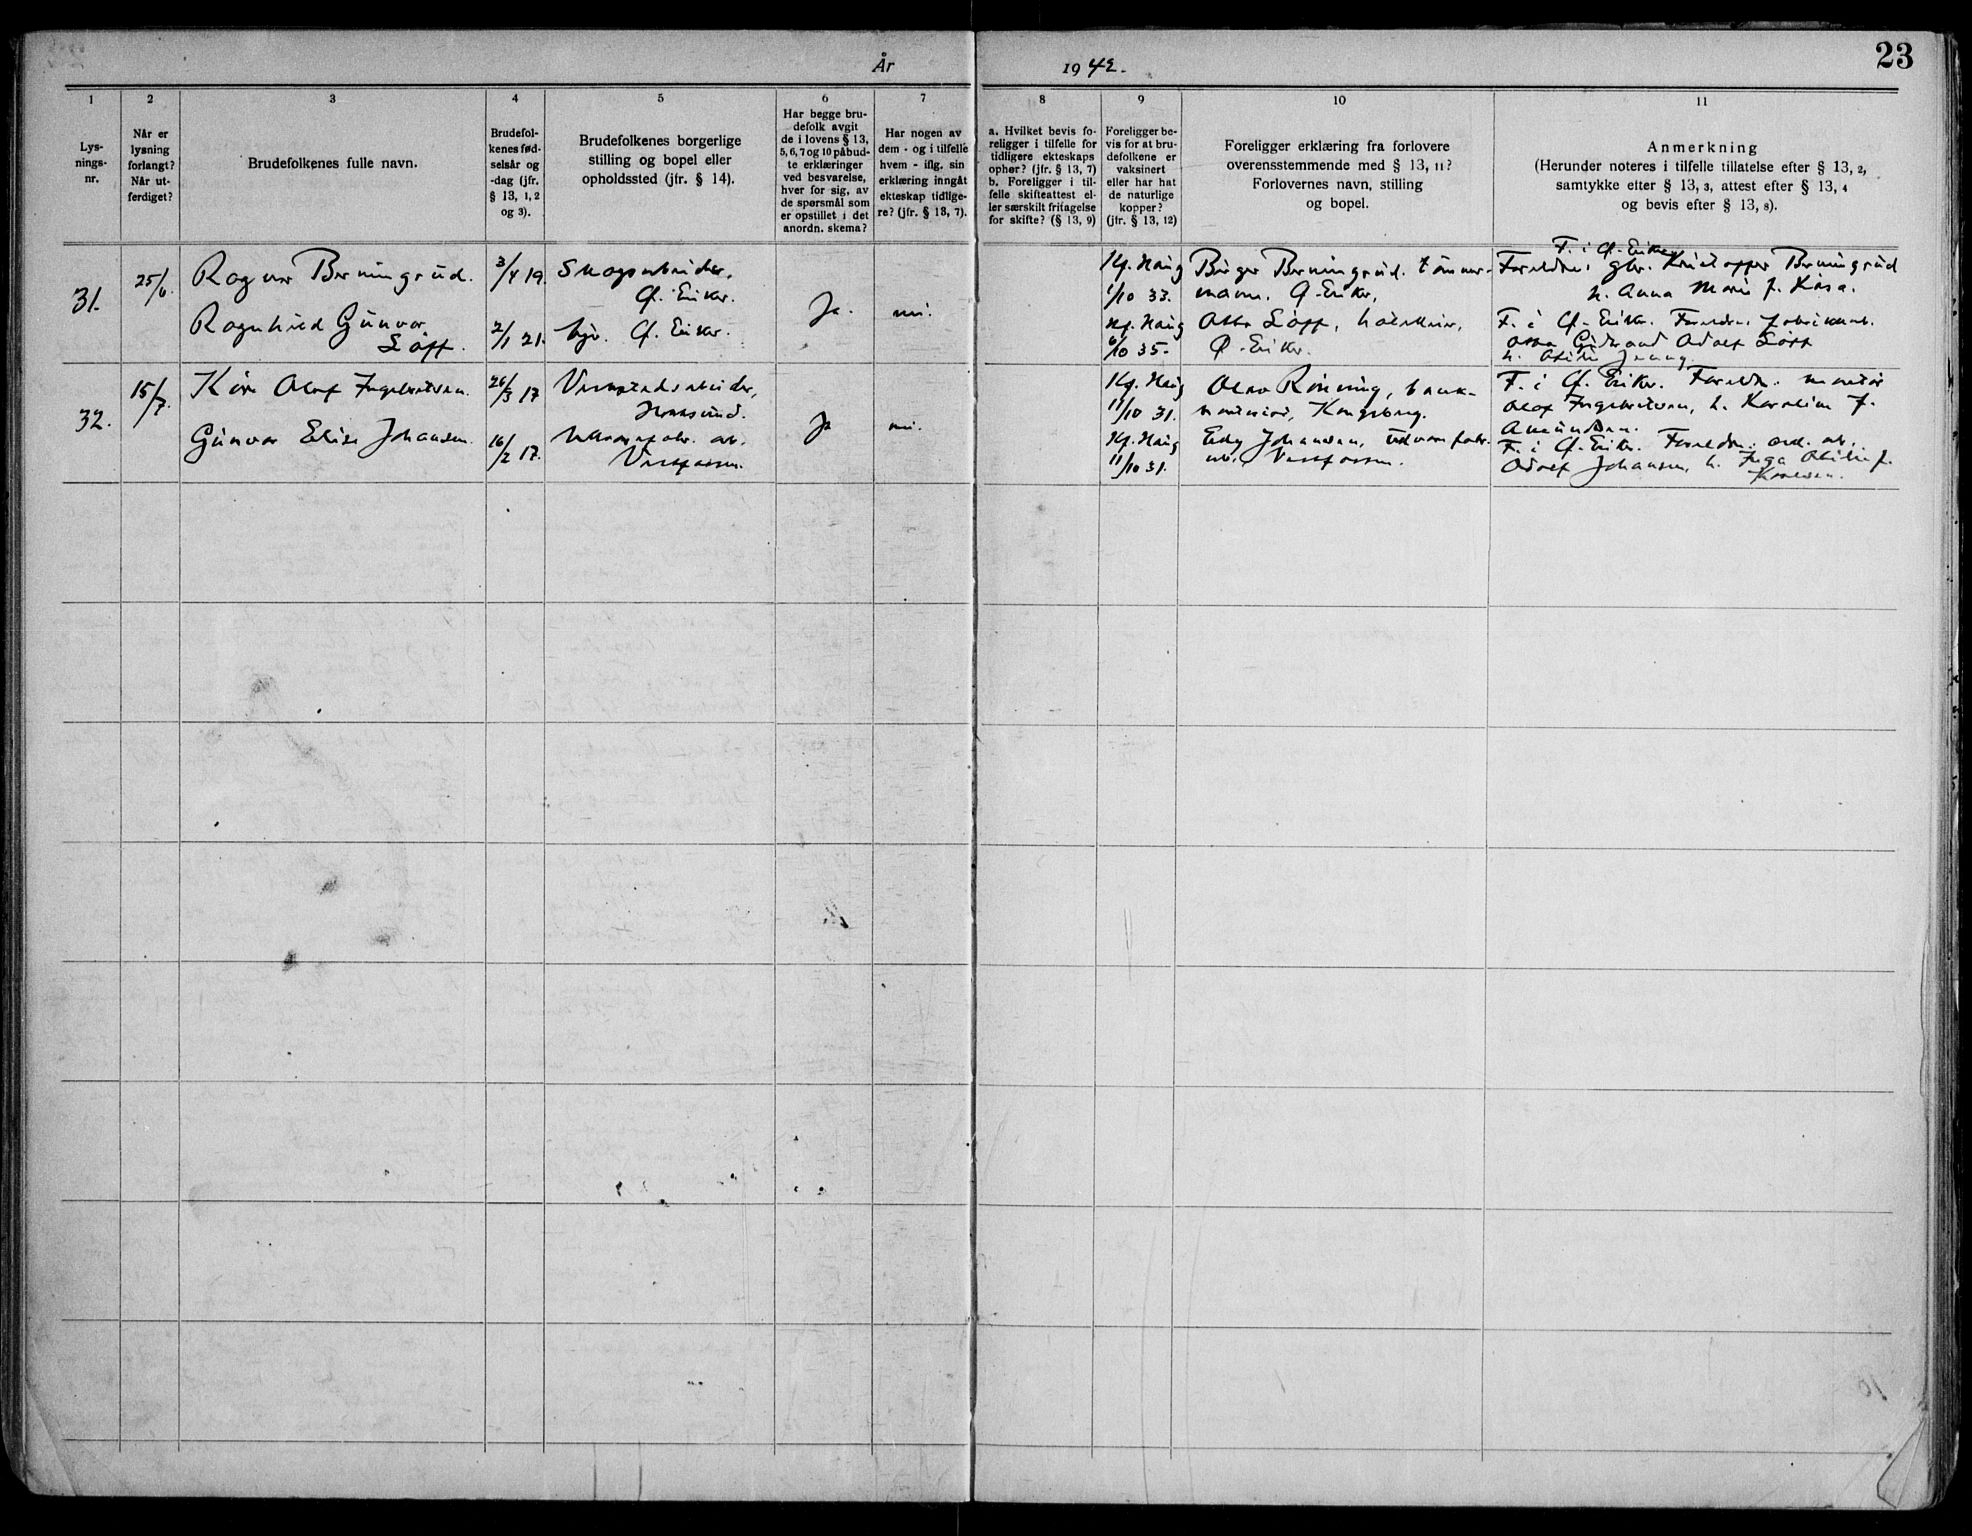 23
År 1942.
1
2
3
4
5
6
7
8
9
10
11
Lys-
nings-
nr.
Når er
lysning
forlangt?
Når ut-
ferdiget?
Brudefolkenes fulle navn.
Brudefol-
kenes fød-
selsår og
-dag (jfr.
§ 13, 1, 2
og 3).
Brudefolkenes borgerlige
stilling og bopel eller
opholdssted (jfr. § 14).
Har begge bru-
defolk avgit
de i lovens § 13,
5, 6, 7 og 10 påbud-
te erklæringer
ved besvarelse,
hver for sig, av
de spørsmål som
er opstillet i det
anordn. skema?
Har nogen av
dem - og i tilfelle
hvem - iflg. sin
erklæring inngåt
ekteskap tidlige-
re? (jfr. § 13, 7).
a. Hvilket bevis fo-
religger i tilfelle for
tidligere ekteskaps
ophør? (jfr. § 13, 7)
b. Foreligger i til-
felle skifteattest el-
ler særskilt fritagelse
for skifte? (§ 13, 9)
Foreligger be-
vis for at bru-
defolkene er
vaksinert
eller har hat
de naturlige
kopper?
(jfr. § 13, 12)
Foreligger erklæring fra forlovere
overensstemmende med § 13, 11?
Forlovernes navn, stilling
og bopel.
Anmerkning
(Herunder noteres i tilfelle tillatelse efter § 13, 2,
samtykke efter § 13, 3, attest efter § 13, 4
og bevis efter § 13, 8).
31.
25/6.
Ragnar Berningrud.
3/4 19.
Skogsarbeider.
Ø. Eiker.
Ragnhild Gunvor
Loff.
2/1 21.
Ø. Eiker.
Ja.
nei.
Kg. Haug
1/10 33.
Kg. Haug
6/10 35.
Birger Berningrud. tømmer-
mann. Ø. Eiker,
Loff,
Ø. Eiker.
F. i Ø. Eiker
Foreldre: gbr. Kristoffer Berningrud
h. Anna Marie f. Kåsa.
F. i Ø. Eiker. Foreldre:
Adolf Loff
h.
32.
15/7.
Kåre Olaf Ingebretsen.
26/3 17
Verkstedsarbeider,
Hokksund.
Gunvor Elise Johansen
16/2 17.
Vestfossen.
Ja
nei.
Kg. Haug
11/10 31.
Kg. Haug
11/10 31.
Olav Rönning, bank-
Kongsberg.
Johansen,
Vestfossen.
F. i Ø. Eiker. Foreldre: montør
Olaf Ingebretsen, h. Karoline f.
Amundsen.
F. i Ø. Eiker. Foreldre:
Adolf Johansen, h. Inga f.